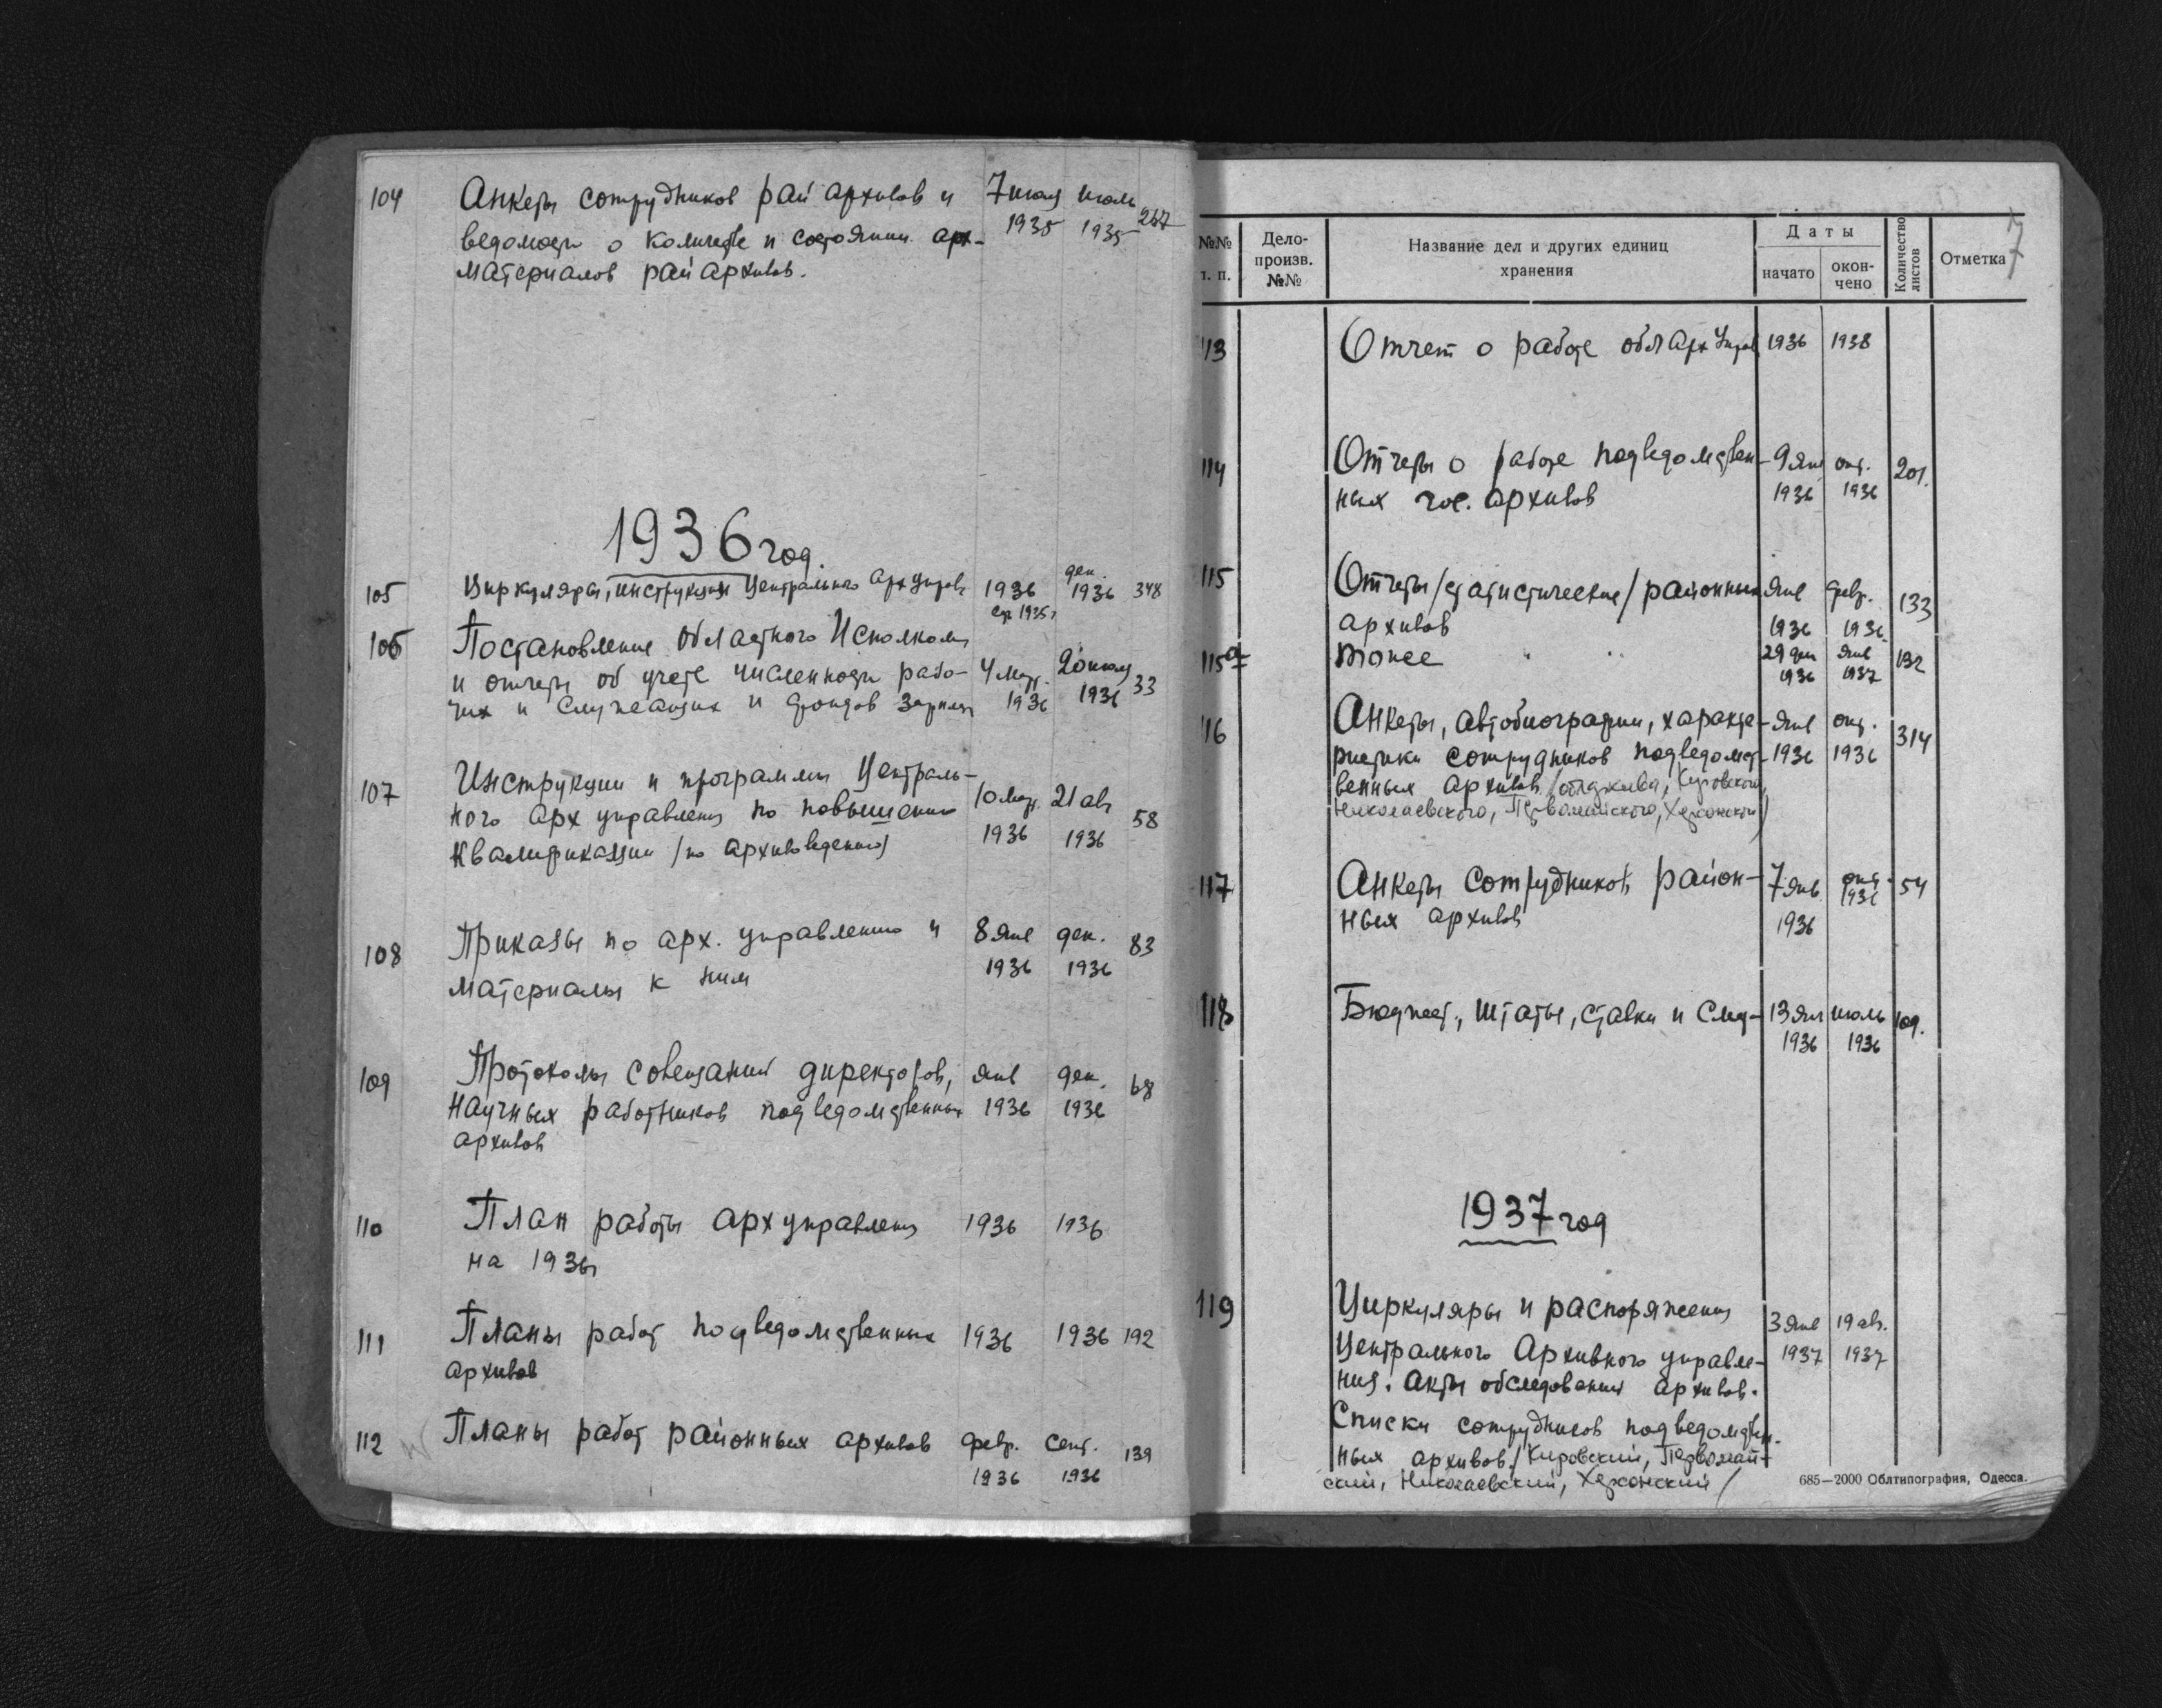 104 Анкеты сотрудников рай архивов и 7 июля июль 267
ведомости о количестве и состоянии арх- 1935 1935
материалов рай архивов.
1936 год.
105 Циркуляры, инструкции Центрального Арх управ. 1936 дек. 1936 348
106 Постановление областного Исполкома
и отчеты об учете численности рабо- 4 мар. 20 июля 33
чих и служащих и фондов зарплаты 1936 1936
107 Инструкции и программы Централь-
ного Арх управления по повышению 10 мар. 21 ав. 58
квалификации /по архивоведению/ 1936 1936
108 Приказы по арх. управлению и 8 янв дек. 83
материалы к ним 1936 1936
109 Протоколы совещаний директоров, янв дек. 68
научных работников подведомственных 1936 1936
архивов
110 План работы арх управления 1936 1936
на 1936г
111 Планы работ подведомственных 1936 1936 192
архивов
112 Планы работ районных архивов февр. сент. 139
1936 1936
7
№№ т. п. Дело-произв. №№ Название дел и других единиц хранения Даты начато окон-чено Количество листов Отметка
113 Отчет о работе обл Арх Управ 1936 1938
114 Отчеты о работе подведомствен- 9 янв окт. 201.
ных гос. архивов 1936 1936
115 Отчеты /статистические/ районных янв февр. 133
архивов 1936 1936
115а тоже " " 29 дек 1936 янв 1937 132
116 Анкеты, автобиографии, характе- янв окт. 314
ристики сотрудников подведомст- 1936 1936
венных архивов /облархива, Кировского,
Николаевского, Первомайского, Херсонского/
117 Анкеты сотрудников район- 7 янв. окт. 54
ных архивов 1936 1936
118 Бюджет, штаты, ставки и смет- 13 янв июль 109.
1936 1936
1937 год
119 Циркуляры и распоряжения 3 янв 19 ав.
Центрального Архивного управле- 1937 1937
ния. Акты обследования архивов.
Списки сотрудников подведомствен-
ных архивов. /Кировский, Первомай-
ский, Николаевский, Херсонский/
685—2000 Облтипография, Одесса.